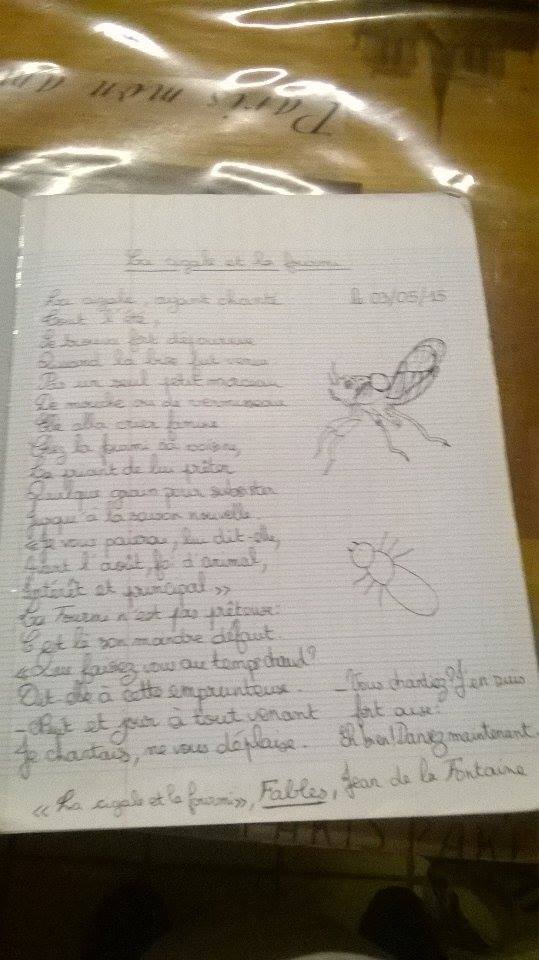 Paris mon am
La cigale et la fourmi
Le 03/05/15
La cigale, ayant chanté
Tout l'été,
Se trouva fort dépourvue
Quand la bise fut venue
Pas un seul petit morceau
De mouche ou de vermisseau
Elle alla crier famine
Chez la fourmi sa voisine,
La priant de lui prêter
Quelque grain pour subsister
Jusqu'à la saison nouvelle
«Je vous paierai, lui dit-elle,
Avant l'août, foi d'animal,
Intérêt et principal.»
La Fourmi n'est pas prêteuse:
C'est là son moindre défaut.
«Que faisiez vous au temps chaud?
Dit elle à cette emprunteuse.
-Nuit et jour à tout venant
Je chantais, ne vous déplaise.
-Vous chantiez? J'en suis
fort aise:
Eh bien! Dansez maintenant.
«La cigale et la fourmi», Fables, Jean de la Fontaine
PARIS PARI